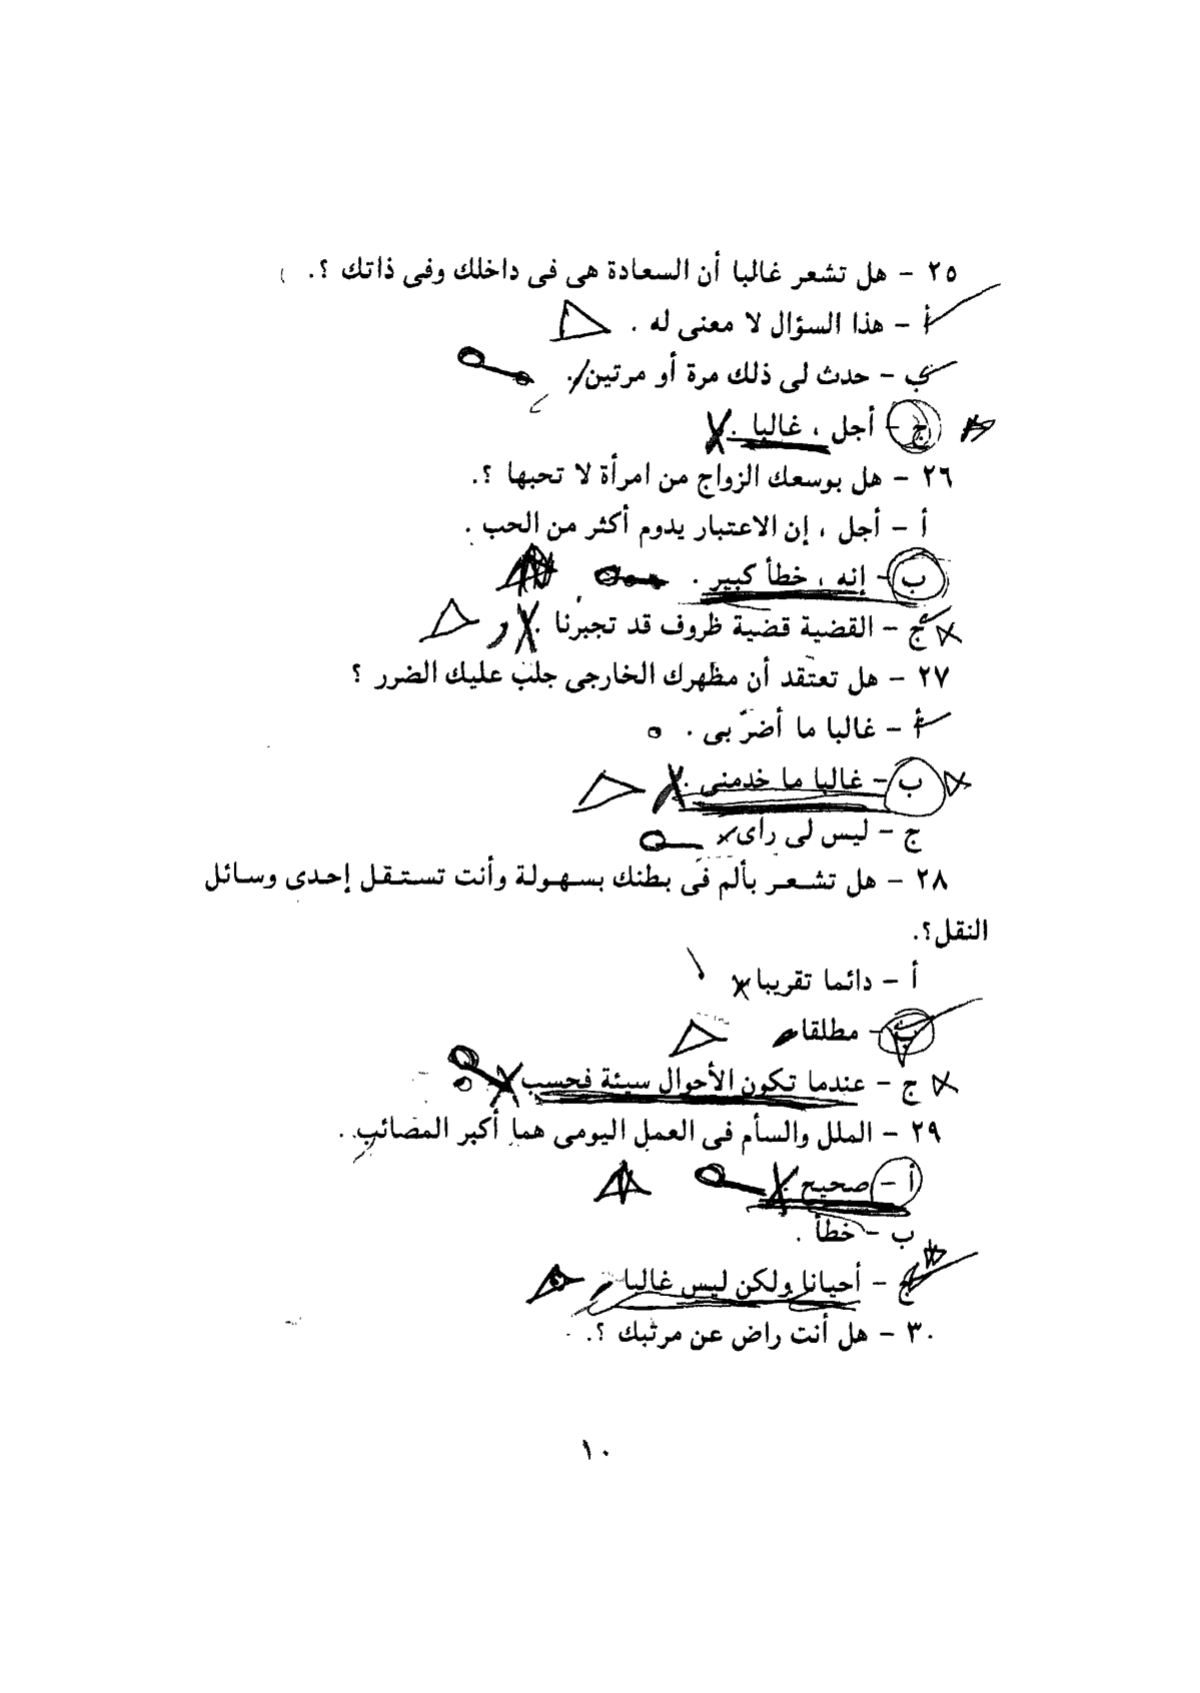 ٢٥ - هل تشعر غالبا أن السعادة هى فى داخلك وفى ذاتك ؟.
أ - هذا السؤال لا معنى له .
ب - حدث لى ذلك مرة أو مرتين .
ج - أجل ، غالبا .
٢٦ - هل بوسعك الزواج من امرأة لا تحبها ؟.
أ - أجل ، إن الاعتبار يدوم أكثر من الحب .
ب - إنه ، خطأ كبير .
ج - القضية قضية ظروف قد تجبرنا .
٢٧ - هل تعتقد أن مظهرك الخارجى جلب عليك الضرر ؟
أ - غالبا ما أضرّ بى .
ب - غالبا ما خدمنى .
ج - ليس لى راى
٢٨ - هل تشعر بألم فى بطنك بسهولة وأنت تستقل إحدى وسائل
النقل؟.
أ - دائما تقريبا
ب - مطلقا
ج - عندما تكون الأحوال سيئة فحسب
٢٩ - الملل والسأم فى العمل اليومى هما أكبر المصائب .
أ - صحيح
ب - خطأ .
ج - أحيانا ولكن ليس غالبا
٣٠ - هل أنت راض عن مرتبك ؟.
١٠